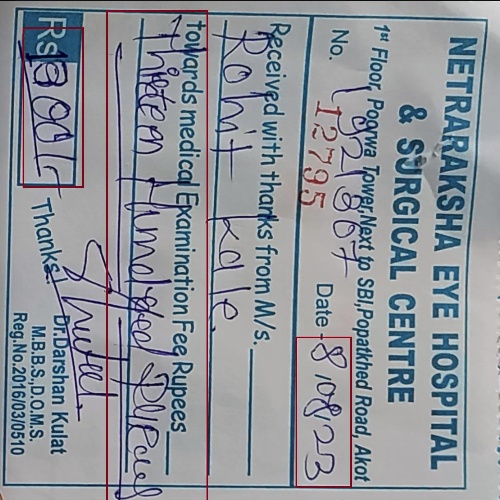 NETRARAKSHA EYE HOSPITAL
& SURGICAL CENTRE
1st Floor, Poorwa Tower, Next to SBI, Popatkhed Road, Akot
No. 1821867 Date - 8/08/23
12795
Received with thanks from M/s.
Rohit Kale.
towards medical Examination Fee Rupees
Thirteen Hundred
Rs. 1300/- Thanks.
Dr. Darshan Kulat
M.B.B.S., D.O.M.S.
Reg. No. 2016/03/0510